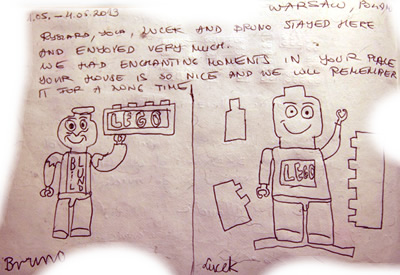 1.05. - 4.06.2013
WARSAW, POLAND
RYSZARD, JOLA, LUCEK AND BRUNO STAYED HERE
AND ENJOYED VERY MUCH.
WE HAD ENCHANTING MOMENTS IN YOUR PLACE
YOUR HOUSE IS SO NICE AND WE WILL REMEMBER
IT FOR A LONG TIME
LEGO
LEGO
Bruno
Lucek